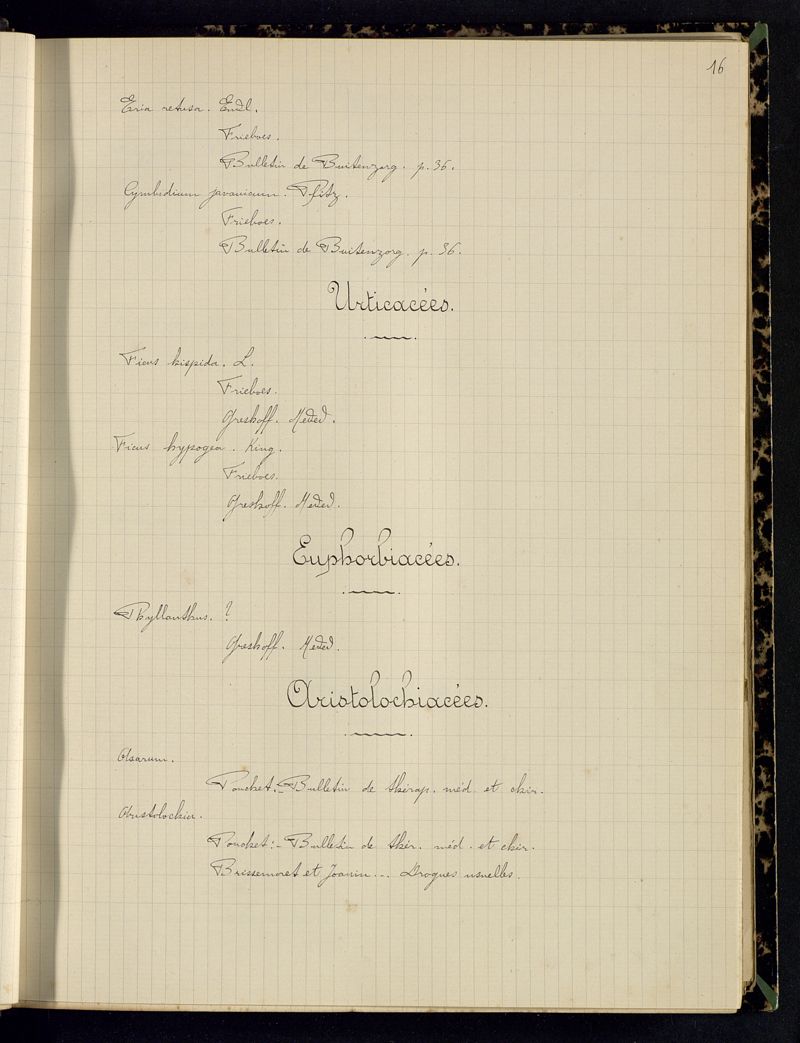 16
Eria retusa. Endl.
Frieboes.
Bulletin de Buitenzorg. p. 36.
Cymbidium javanicum. Pfitz.
Frieboes.
Bulletin de Buitenzorg. p. 36.
Urticacées.
Ficus hispida. L.
Frieboes.
Greshoff. Meded.
Ficus hypogea. King.
Frieboes.
Greshoff. Meded.
Euphorbiacées.
Phyllanthus. ?
Greshoff. Meded.
Aristolochiacées.
Asarum.
Pouchet:- Bulletin de thérap. méd. et chir.
Aristolochia.
Pouchet:- Bulletin de thér. méd. et chir.
Brissemoret et Joanin... Drogues usuelles.